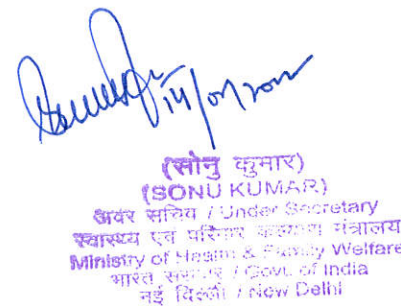 14/07/2022
(सोनु कुमार)
(SONU KUMAR)
अवर सचिव / Under Secretary
स्वास्थ्य एवं परिवार कल्याण मंत्रालय
Ministry of Health & Family Welfare
भारत सरकार / Govt. of India
नई दिल्ली / New Delhi